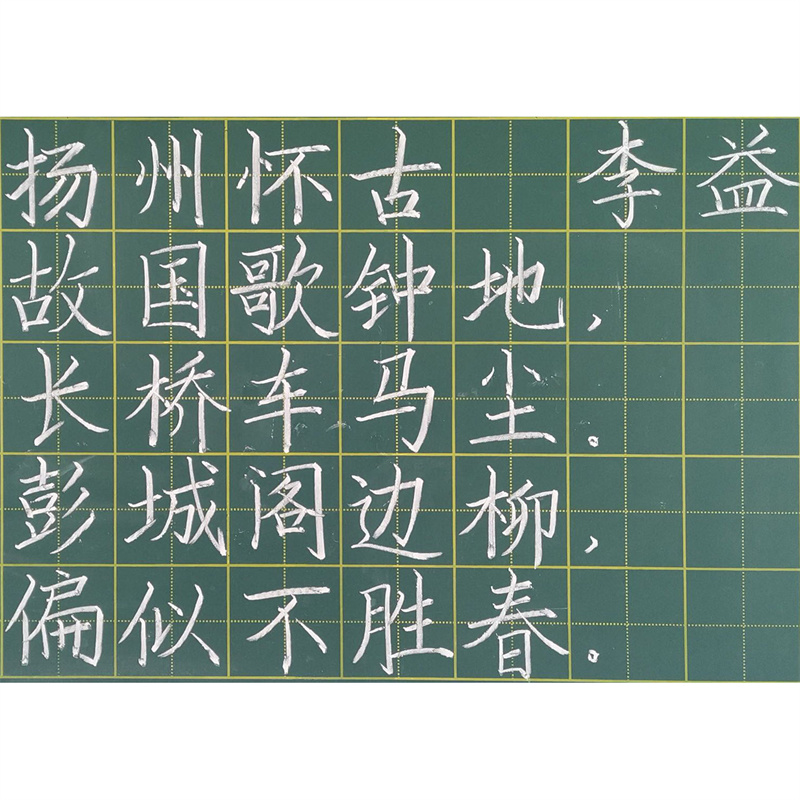 扬州怀古 李益
故国歌钟地，
长桥车马尘。
彭城阁边柳，
偏似不胜春。